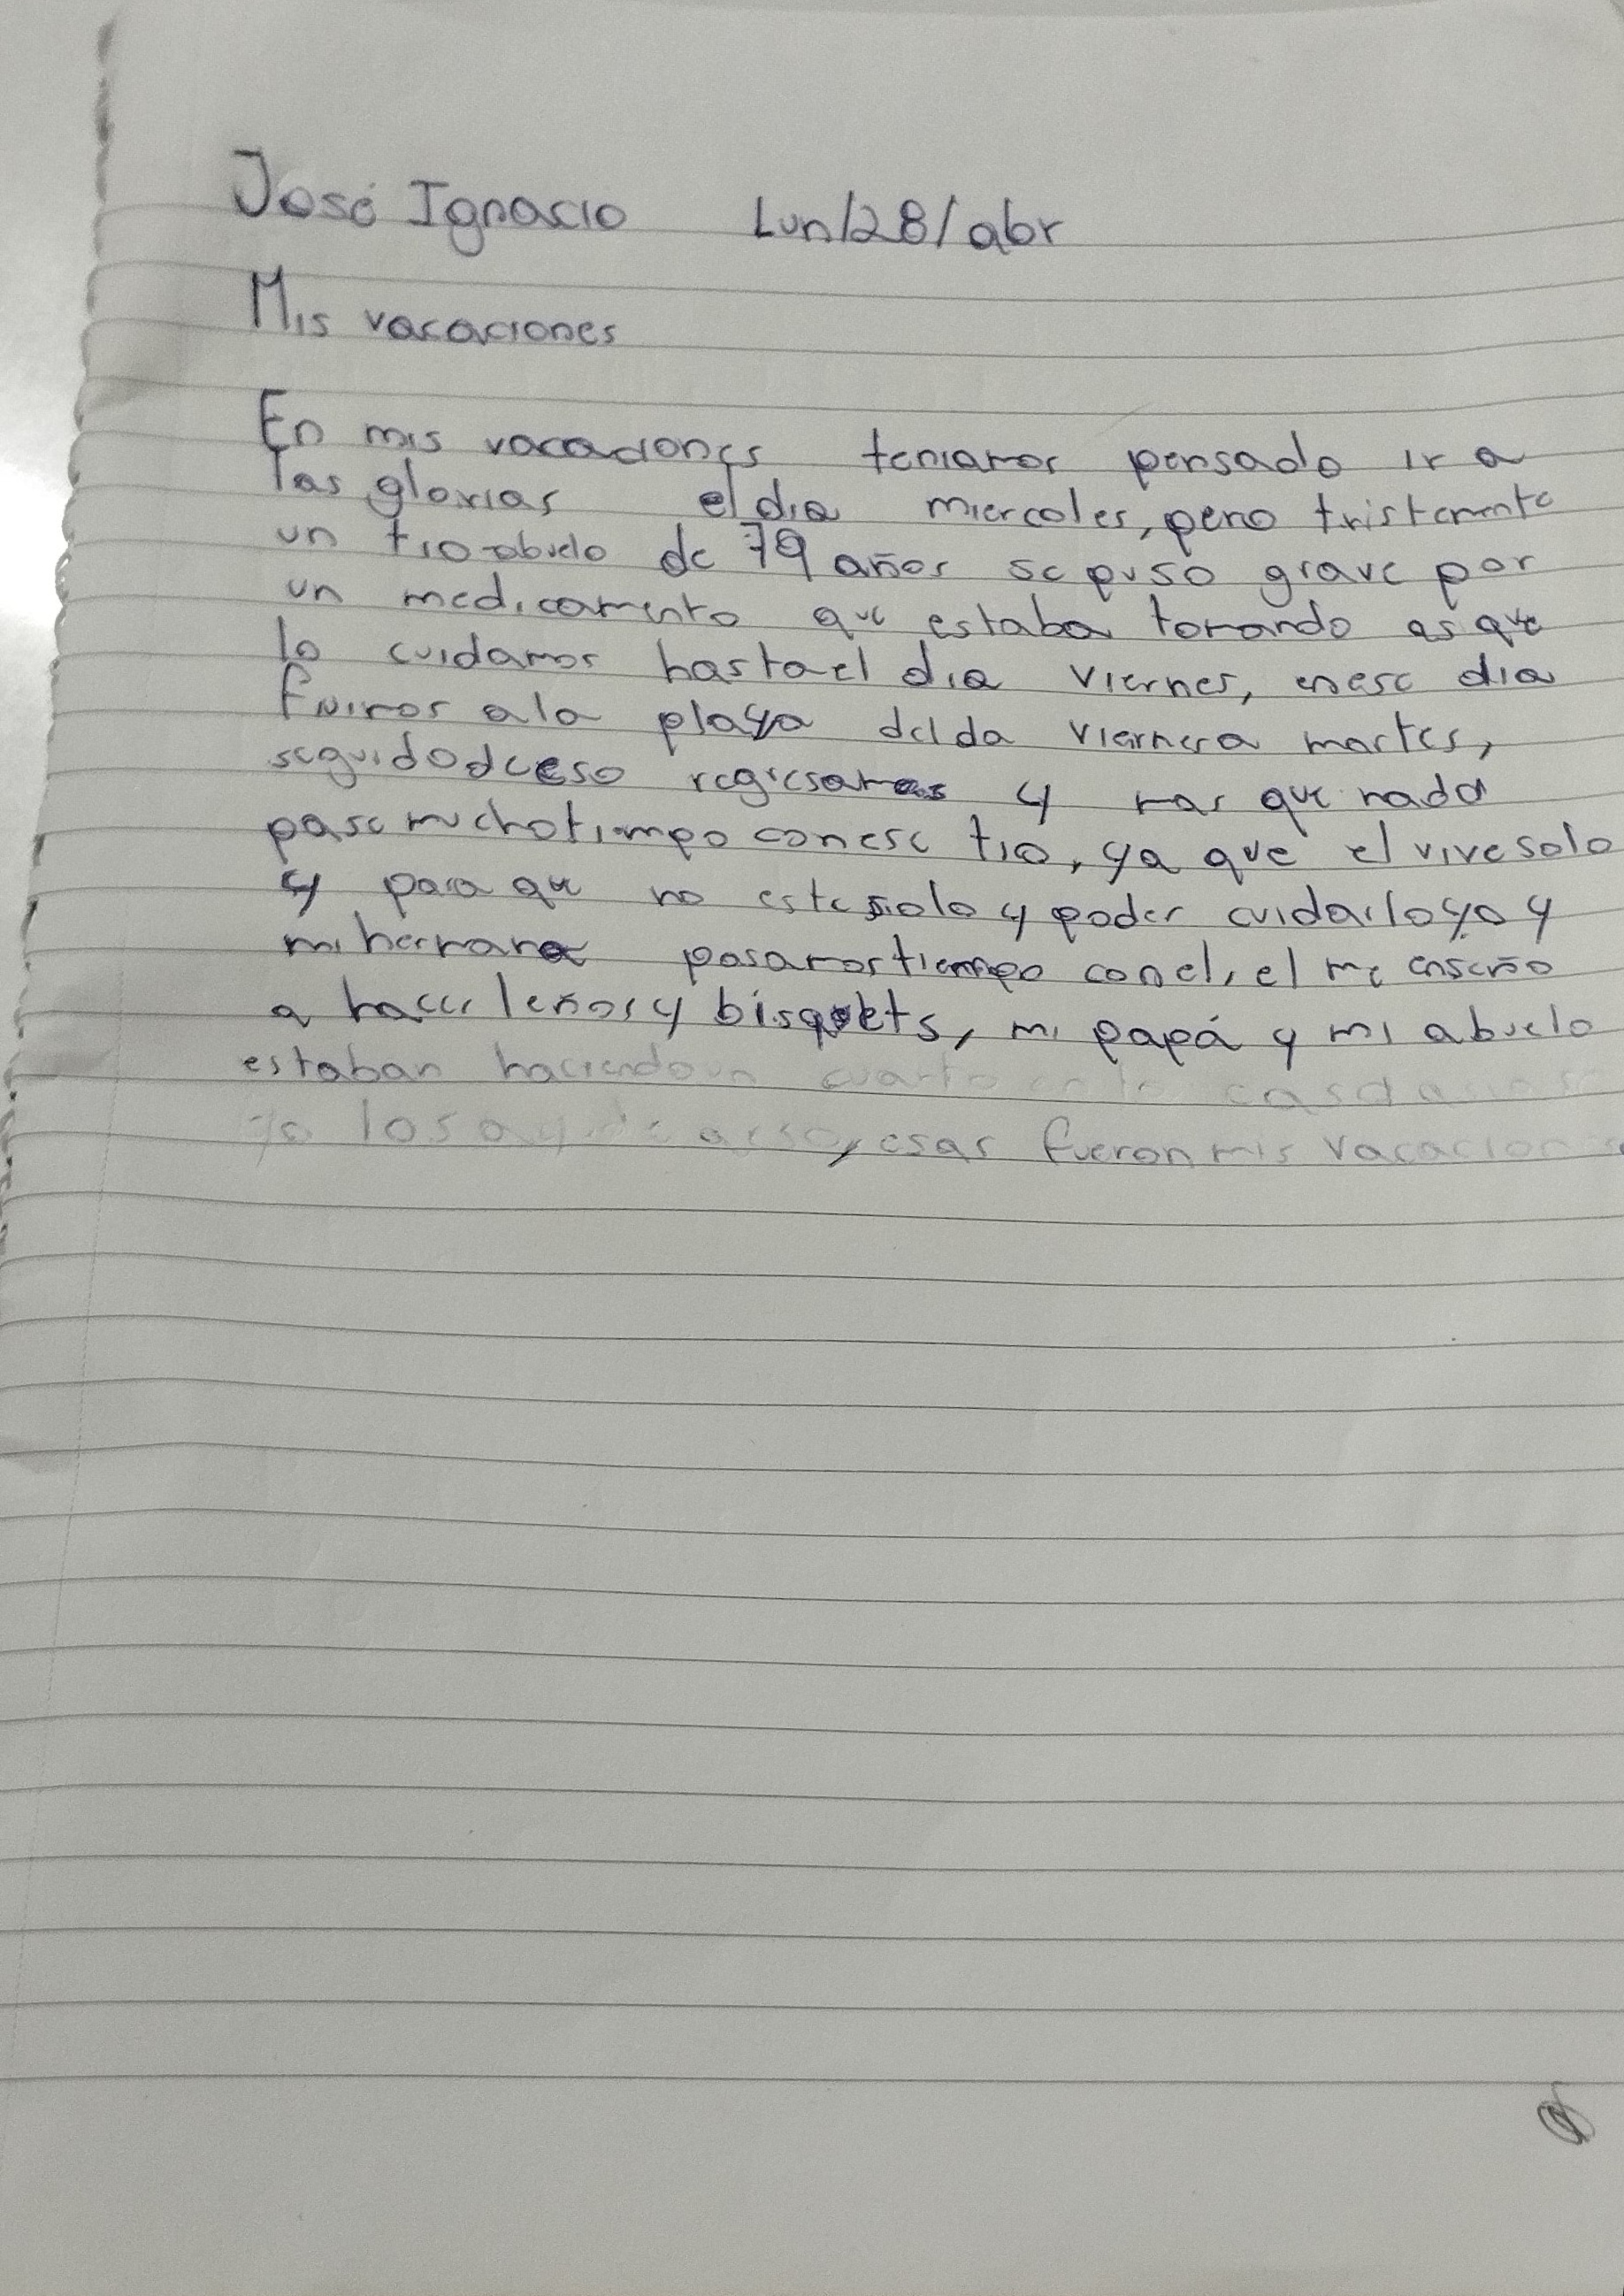 José Ignacio Lun/28/abr
Mis vacaciones
En mis vacaciones teniamos pensado ir a
las glorias el dia miercoles, pero tristemente
un tio-abuelo de 79 años se puso grave por
un medicamento que estaba tomando as que
lo cuidamos hasta el dia viernes, en ese dia
fuimos a la playa del da viernes a martes,
seguido de eso regresamos y mas que nada
pase mucho tiempo con ese tio, ya que el vive solo
y para que no este solo y poder cuidarlo yo y
mi hermana pasamos tiempo con el, el me enseño
a hacer leños y bisquets, mi papá y mi abuelo
estaban haciendo un cuarto en la casa de
yo los a eso, esas fueron mis vacaciones